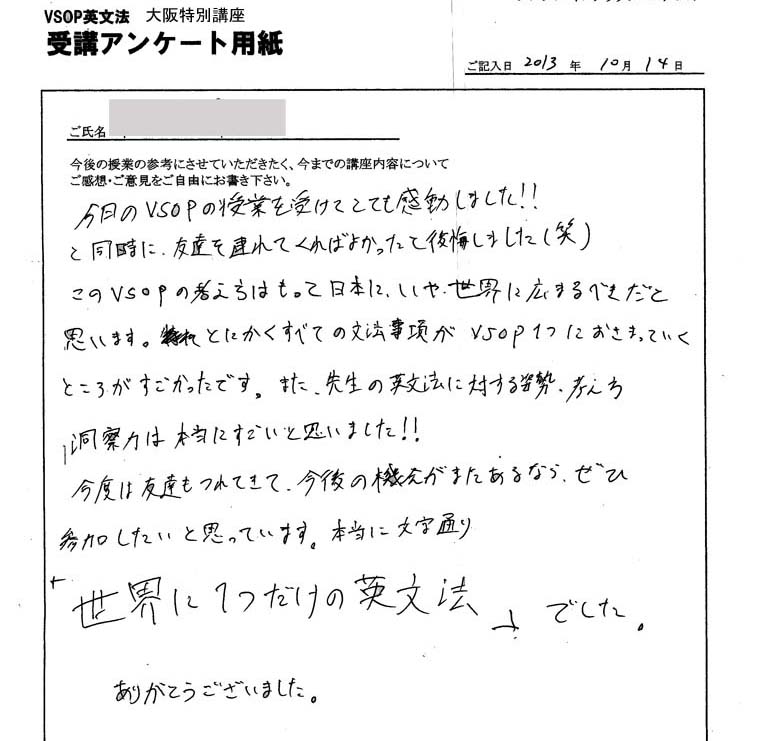 VSOP英文法 大阪特別講座
受講アンケート用紙
ご記入日 2013 年 10月 14日
ご氏名
今後の授業の参考にさせていただきたく、今までの講座内容について
ご感想・ご意見をご自由にお書き下さい。
今日のVSOPの授業を受けてとても感動しました!!
と同時に、友達を連れてくればよかったと後悔しました(笑)
このVSOPの考え方はもっと日本に、いや、世界に広まるべきだと
思います。とにかくすべての文法事項がVSOP1つにおさまっていく
ところがすごかったです。また、先生の英文法に対する姿勢、考え方
洞察力は本当にすごいと思いました!!
今度は友達もつれてきて、今後の機会がまたあるなら、ぜひ
参加したいと思っています。本当に文字通り
「世界に1つだけの英文法」でした。
ありがとうございました。